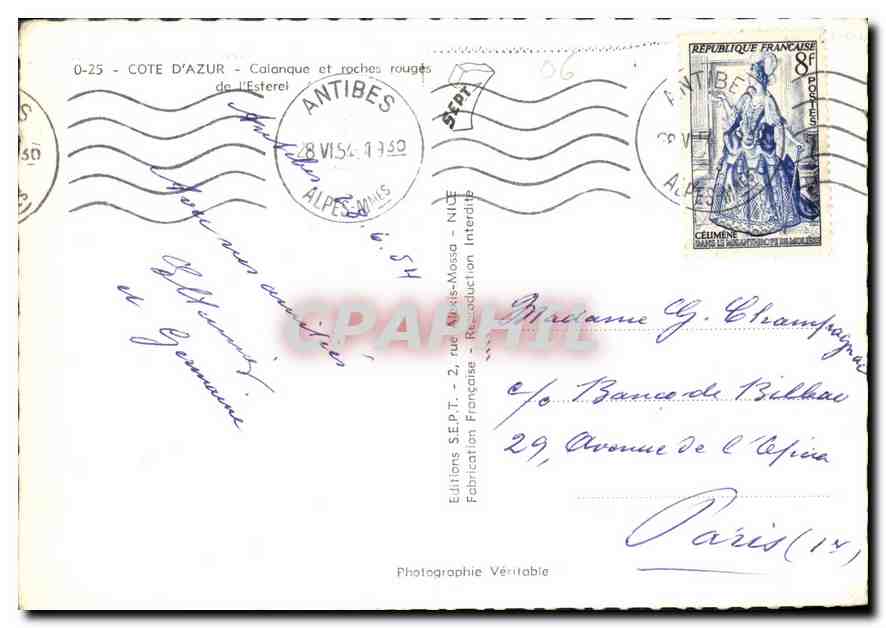 0-25 - COTE D'AZUR - Calanque et roches rouges
de l'Esterel
ANTIBES
28 VI 54 19 30
ALPES-MMES
SEPT.
06
RÉPUBLIQUE FRANÇAISE
8F
POSTES
CÉLIMÈNE
DANS LE MISANTHROPE DE MOLIÈRE
ANTIBES
ALPES-MMES
30
Antibes 28.6.54
Avec nos amitiés
et Germaine
Editions S.E.P.T. - 2, rue Alexis-Mossa - NICE
Fabrication Française - Reproduction Interdite
CPAPHIL
Madame G. Champagnac
c/o Banco de Bilbao
29, Avenue de l'Opéra
Paris
Photographie Véritable